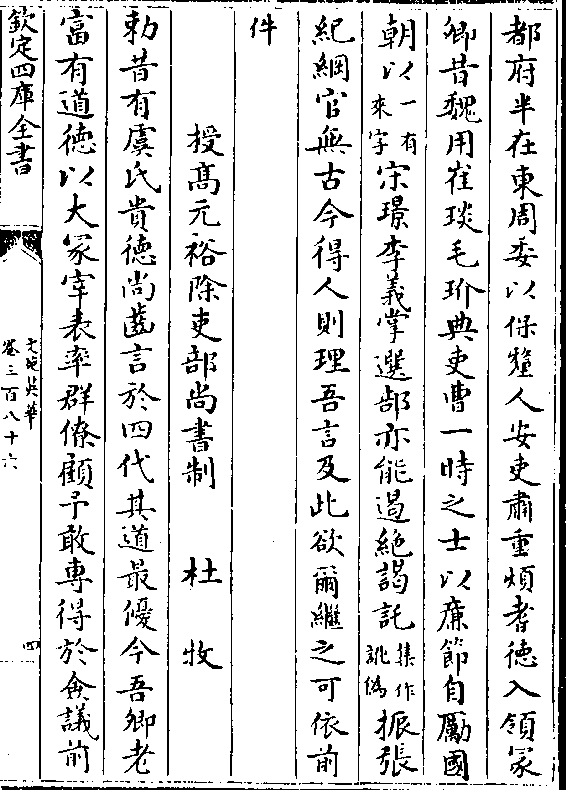 都府半在東周委以保釐人安吏肅重煩耆德入領冢
卿昔魏用崔琰毛玠典吏曹一時之士以廉節自勵國
朝以一有來字宋璟李義掌選部亦能遏絶謁託集作訛偽振張
紀綱官無古今得人則理吾言及此欲爾繼之可依前
件
授髙元裕除吏部尚書制 杜牧
勅昔有虞氏貴德尚齒言於四代其道最優今吾卿老
富有道德以大冢宰表率群僚顧予敢專得於僉議前
欽定四庫全書
文苑英華
卷三百八十六
四